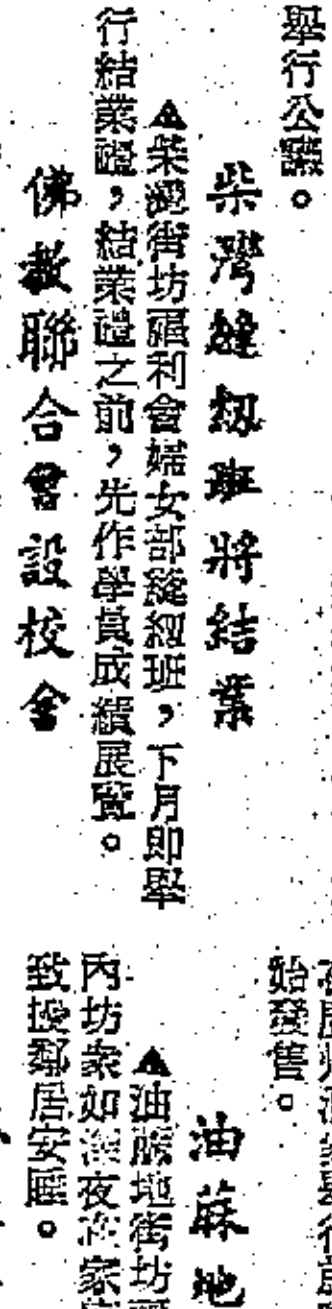 舉行公醼。
柴灣縫紉班將結業
▲柴灣街坊福利會婦女部縫紉班，下月即舉
行結業禮，結業禮之前，先作學員成績展覽。
佛教聯合會設校舍
始發售。
油蔴地
▲油蔴地街坊
內坊衆如深夜在家
致擾鄰居安寧。